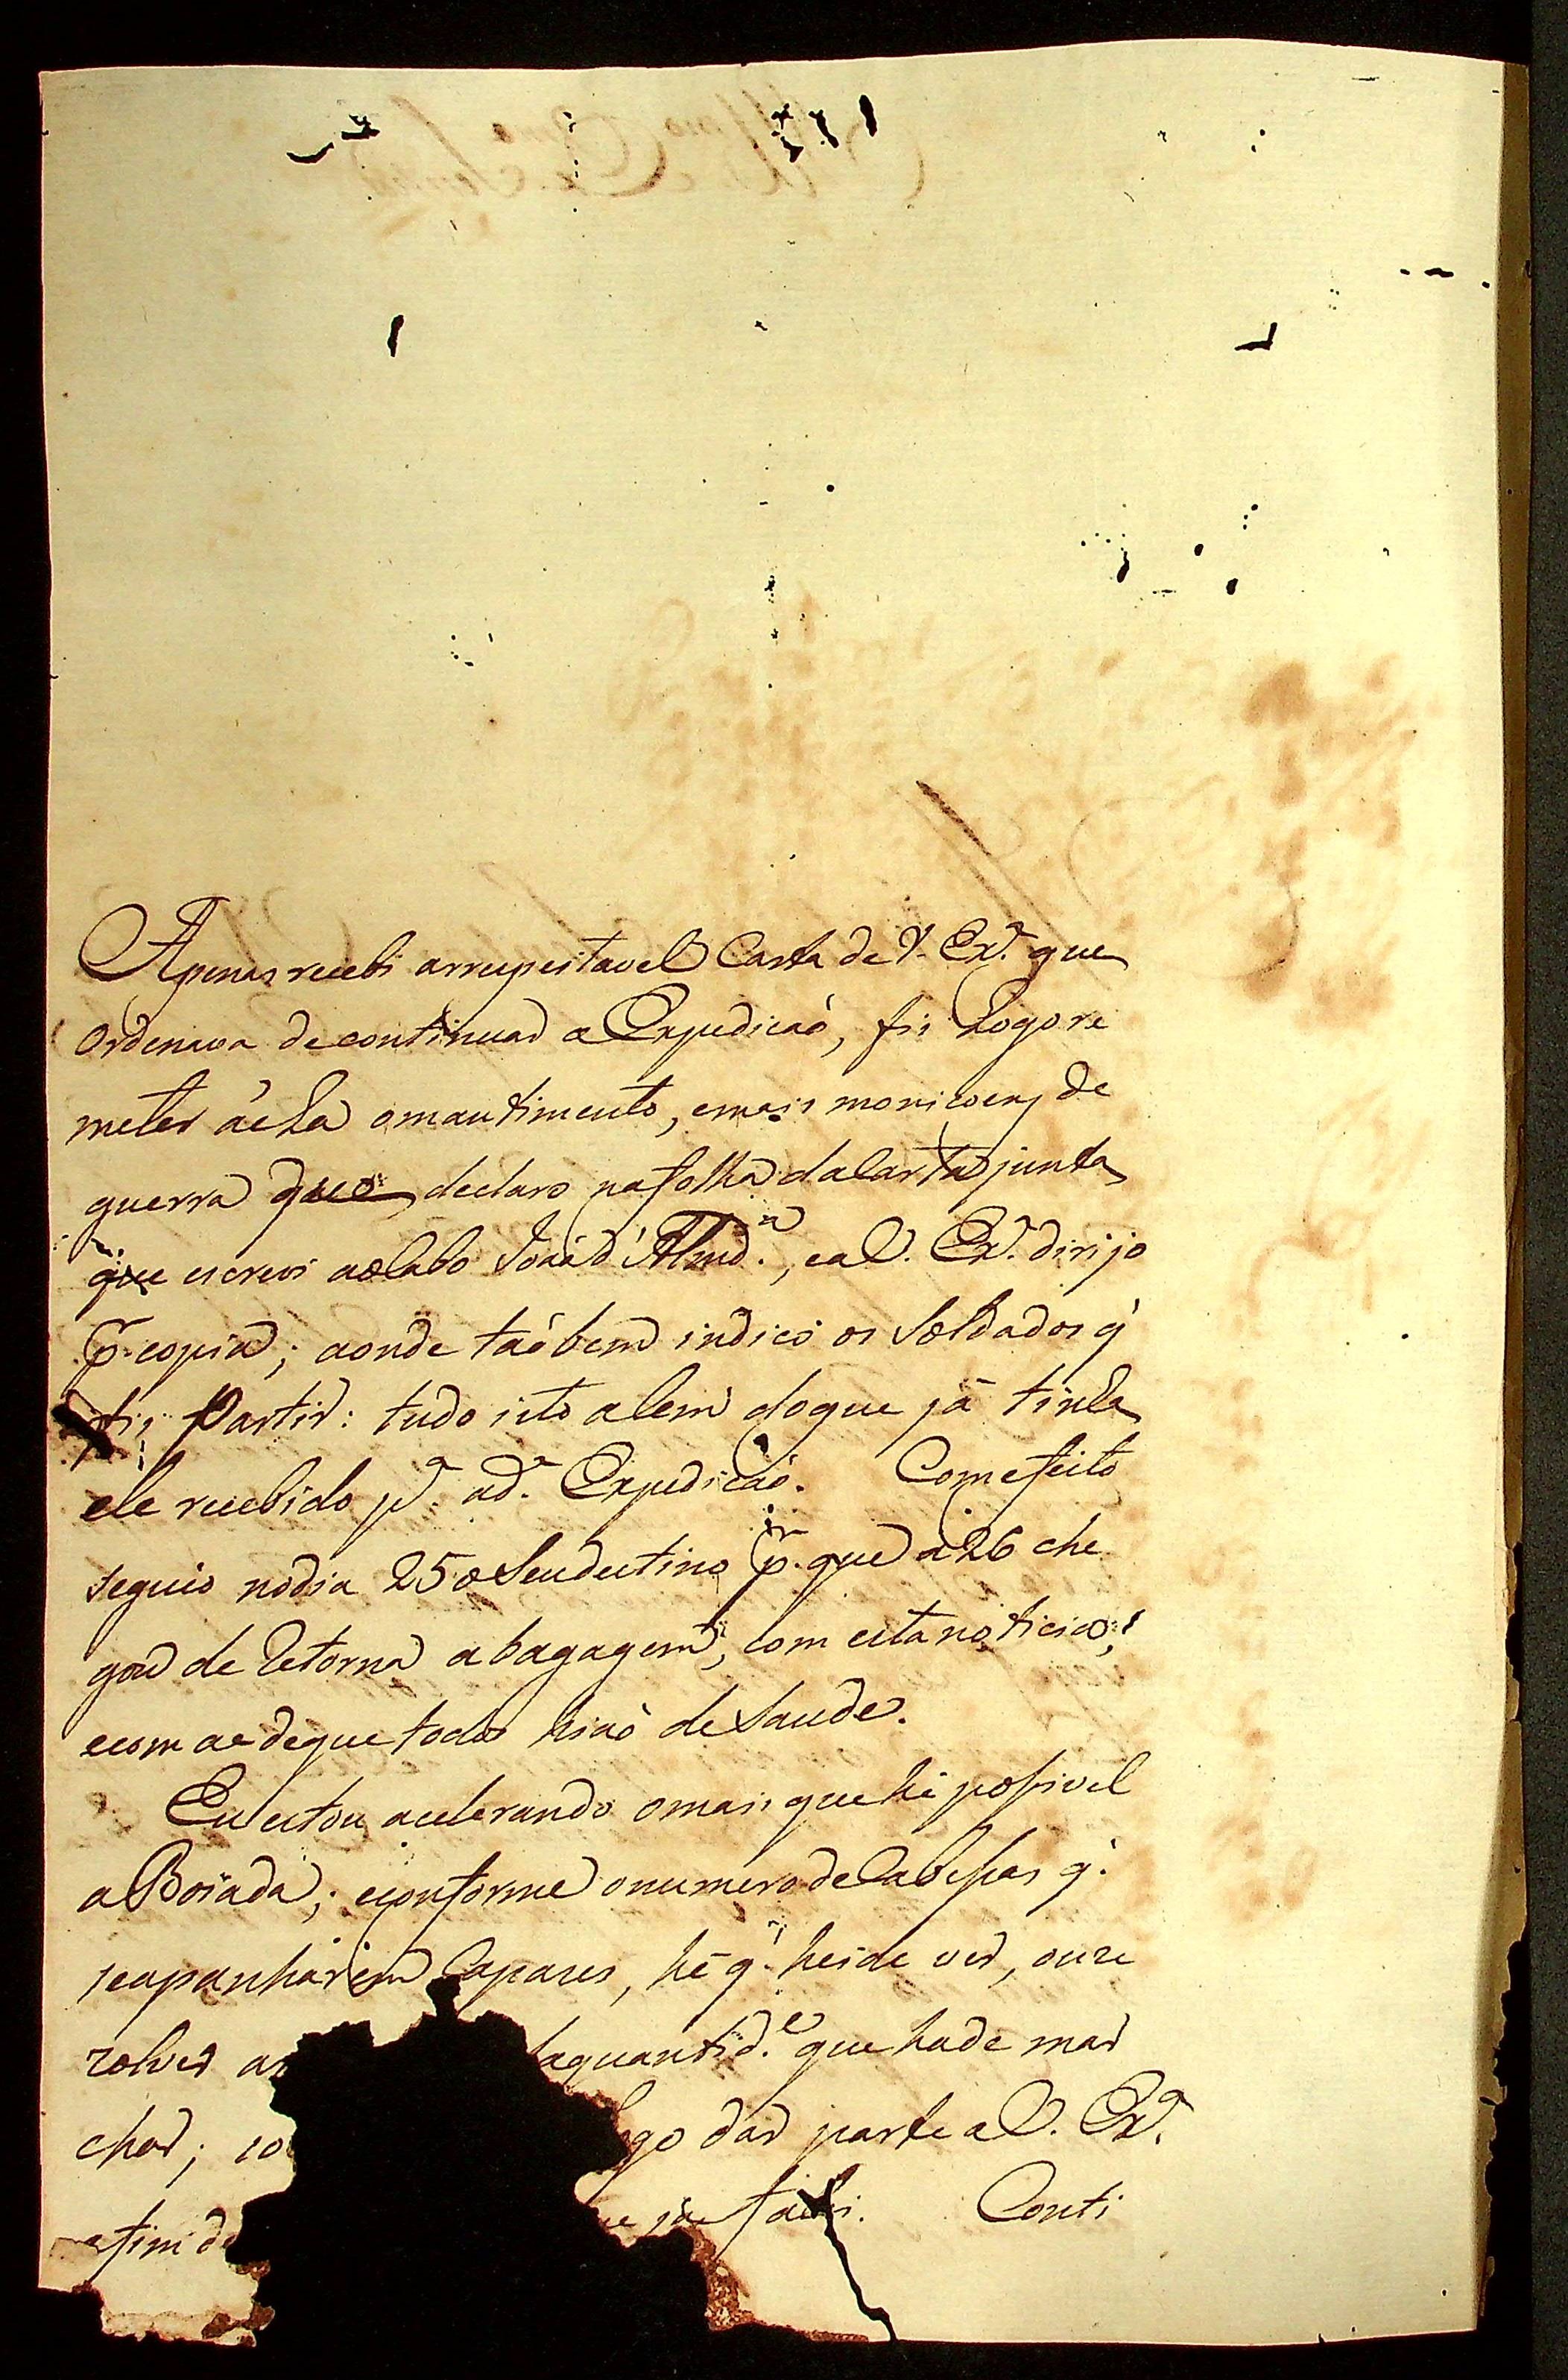 Apenas recebi arrespeitavel Carta de V. Exª. que
Ordenava de continuar a Expedicaõ, fis Logo re
meter áela omantimento, emais monicoens de
guerra que declaro nafolha dalarta junta
que escrevi aoCabo Joaõ d'Almdª., eaV. Exª. dirijo
pr. copia; aonde taõbem indico os Soldados q'
fis Partir: tudo isto alem doque já tinha
ele recebido pª. adª. Expedicaõ. Comefeito
seguio nodia 25 o Seu destino pr. que a 26 che
gou de Retorna abagagem, com esta noticia;
ecom ade que todos hiaõ de Saude.
Eu estou acelerando omais que hé posivel
aBoiada; econforme onumero de Cabessas q'.
seapanharem Capases, hé q'. heide ver, oure
zolver aquantid.e que hade mar
char; go dar parte aV. Exª.
afim de Conti